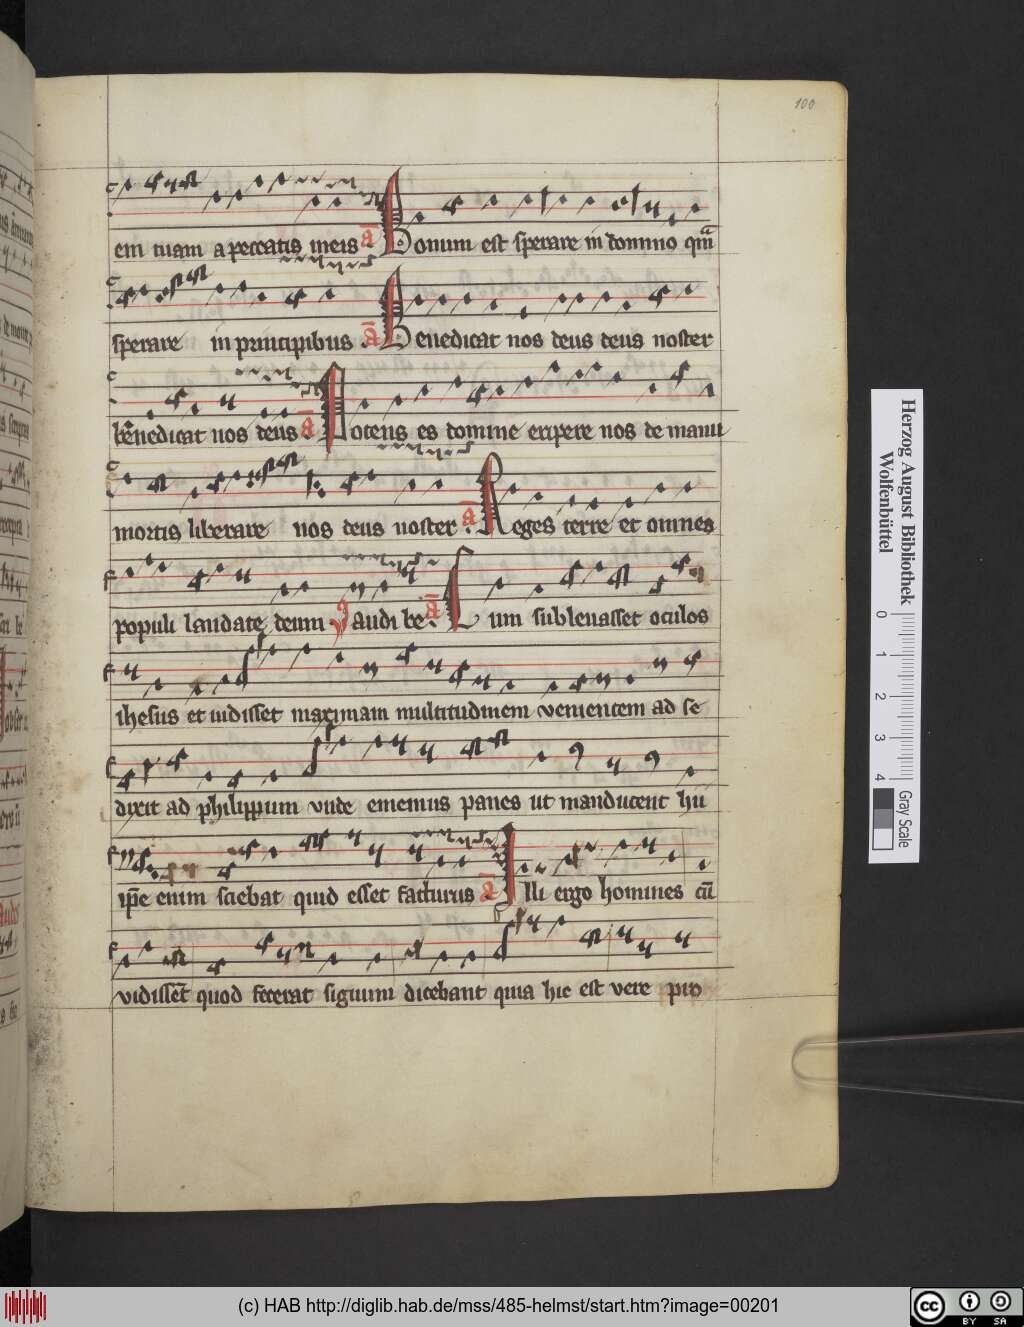 100
em tuam a peccatis meis a̅ Bonum est sperare in domino qm̅
sperare in principibus a̅ Benedicat nos deus deus noster
benedicat nos deus a̅ Potens es domine eripere nos de manu
mortis liberare nos deus noster a̅ Reges terre et omnes
populi laudate deum V audi be a̅ Cum subleuasset oculos
ihesus et uidisset maximam multitudinem venientem ad se
dixit ad philippum vnde ememus panes ut manducent hii
ip̅e enim sciebat quid esset facturus a̅ Illi ergo homines cu̅
vidisset quod fecerat signum dicebant quia hic est vere pro
Herzog August Bibliothek
Wolfenbüttel
0 1 2 3 4
Gray Scale
(c) HAB http://diglib.hab.de/mss/485-helmst/start.htm?image=00201
cc BY SA